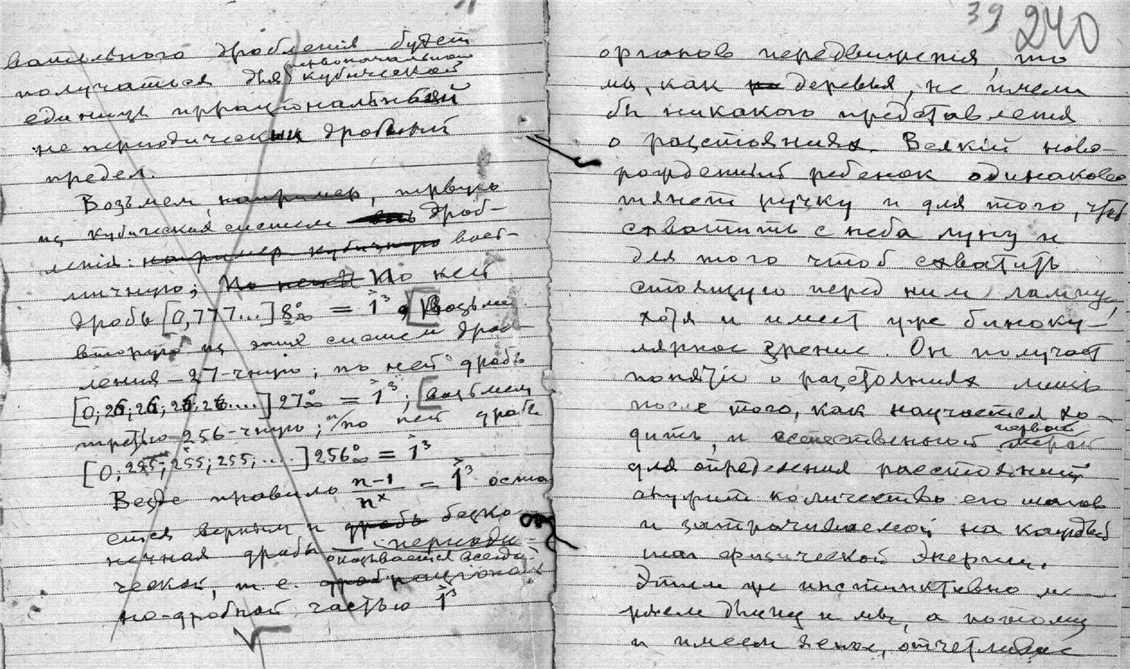 вательного дробления будет
первоначальной
получаться для кубической
единицы иррациональный
не периодический дробный
предел.
Возьмем, например, первую
из кубических систем дроб-
ления: например кубичную вось-
миричную; По ней По ней
дробь [0,777...]8∞ = 1³ Возьмем
вторую из этих систем дроб-
ления – 27-чную; по ней дробь
[0,26,26,26,26....]27∞ = 1³; возьмем
третью 256-чную; по ней дробь
[0,255,255,255,....]256∞ = 1³
Везде правило n-1/nˣ = 1³ оста
ется верным и дробь беско-
нечная дробь периоди-
оказывается всегда
ческой, т. е. рационал
но-дробной частью 1³
39 240
органов передвижения, то
мы, как деревья, не имели
бы никакого представления
о разстояниях. Всякій ново-
рожденный ребенок одинаково
тянет ручку и для того, чтоб
схватить с неба луну и
для того чтоб схватить
стоящую перед ним лампу,
хотя и имеет уже биноку-
лярное зрение. Он получает
понятіе о разстояниях лишь
после того, как научается хо-
первой
дить, и естественной мерой
для определения расстояний
служит количество его шагов
и затрачиваемой на каждый
шаг физической энергии.
Этим же инстинктивно ме-
ряем длину и мы, а потому
и имеем отчетливое